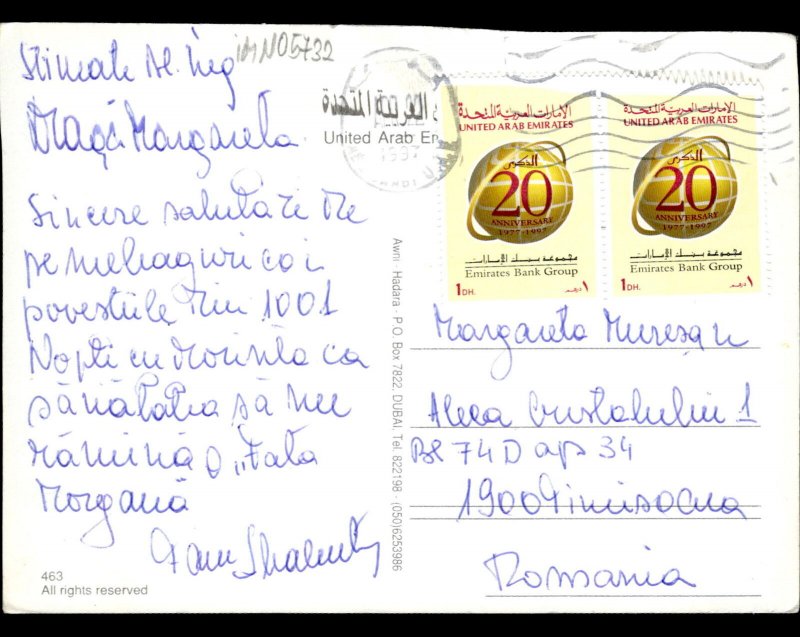 Stimate M. Ing
IMN05732
Dragă Margareta
Sincere salutări de
pe meleaguri ca i
povestile din 1001
Nopti cu dorinta ca
sănătatea să nu
rămină o „Fata
Morgană
463
All rights reserved
العربية المتحدة
United Arab Em
1997
Awni - Hadara - P.O. Box 7822, DUBAI, Tel. 822198 - (050)6253986
الإمارات العربية المتحدة
UNITED ARAB EMIRATES
الذكرى
20
ANNIVERSARY
1977-1997
مجموعة بنك الإمارات
Emirates Bank Group
1 DH. ١ درهم
الإمارات العربية المتحدة
UNITED ARAB EMIRATES
الذكرى
20
ANNIVERSARY
1977-1997
مجموعة بنك الإمارات
Emirates Bank Group
1 DH. ١ درهم
Margareta Muresan
Aleea Cristalului 1
Bl 74 D ap 34
1900 Timisoara
Romania